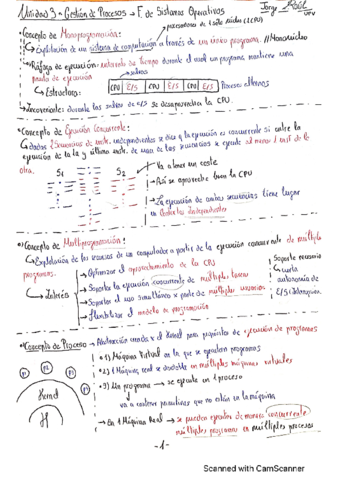 Unidad 3 - Gestión de Procesos → F. de Sistemas Operativos
Jorge
procesadores de 1 solo núcleo (1 CPU)
•Concepto de Monoprogramación:
↳ Explotación de un sistema de computación a través de un único programa. // Mononúcleo
↳ Ráfaga de ejecución: intervalo de tiempo durante el cual un programa mantiene una
de ejecución
↳ Estructura: CPU E/S CPU E/S CPU Proceso
↳ Inconvenientes: durante las de E/S se desaprovecha la CPU.
•Concepto de Ejecución Concurrente:
↳ dadas 2 secuencias de instr. independientes se dice q la ejecución es concurrente si entre la
ejecución de la 1ª y última instr. de una de las secuencias se ejecuta al menos 1 inst de la
otra.
S1 S2
→ Va a tener un coste
→ Así se aprovecha bien la CPU
→ La ejecución de ambas secuencias tiene lugar
en independientes
•Concepto de Multiprogramación:
↳ Explotación de los recursos de un computador a partir de la ejecución concurrente de múltiples
programas.
↳ Interés
→ Optimizar el aprovechamiento de la CPU
→ Soportar la ejecución concurrente de múltiples tareas
→ Soportar el uso simultáneo x parte de múltiples usuarios
→ Flexibilizar el modelo de programación
Soporte necesario
↳ cierta
autonomía de
E/S
•Concepto de Proceso → Abstracción creada x el Kernel para propósitos de ejecución de programas
• 1) Máquina Virtual en la que se ejecutan programas
• 2) 1 Máquina real se desdobla en múltiples máquinas virtuales
• 3) Un programa → se ejecuta en 1 proceso
↳ va a contener primitivas que no están en la máquina
• En 1 Máquina Real → se pueden ejecutar de manera concurrente
múltiples programas en múltiples procesos
P P P P
Kernel
H
-1-
Scanned with CamScanner